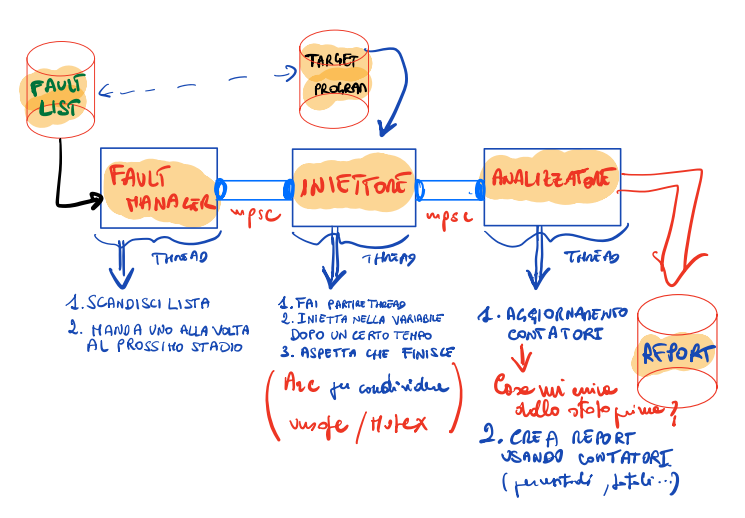 FAULT
LIST
TARGET
PROGRAM
FAULT
MANAGER
mpsc
INIETTORE
mpsc
ANALIZZATORE
THREAD
THREAD
THREAD
1. SCANDISCI LISTA
2. MANDA UNO ALLA VOLTA
AL PROSSIMO STADIO
1. FAI PARTIRE THREAD
2. INIETTA NELLA VARIABILE
DOPO UN CERTO TEMPO
3. ASPETTA CHE FINISCE
(Arc per condividere
unsafe / Mutex)
1. AGGIORNAMENTO
CONTATORI
Cosa mi arriva
dallo stato prima?
2. CREA REPORT
USANDO CONTATORI
(percentuali, totali...)
REPORT